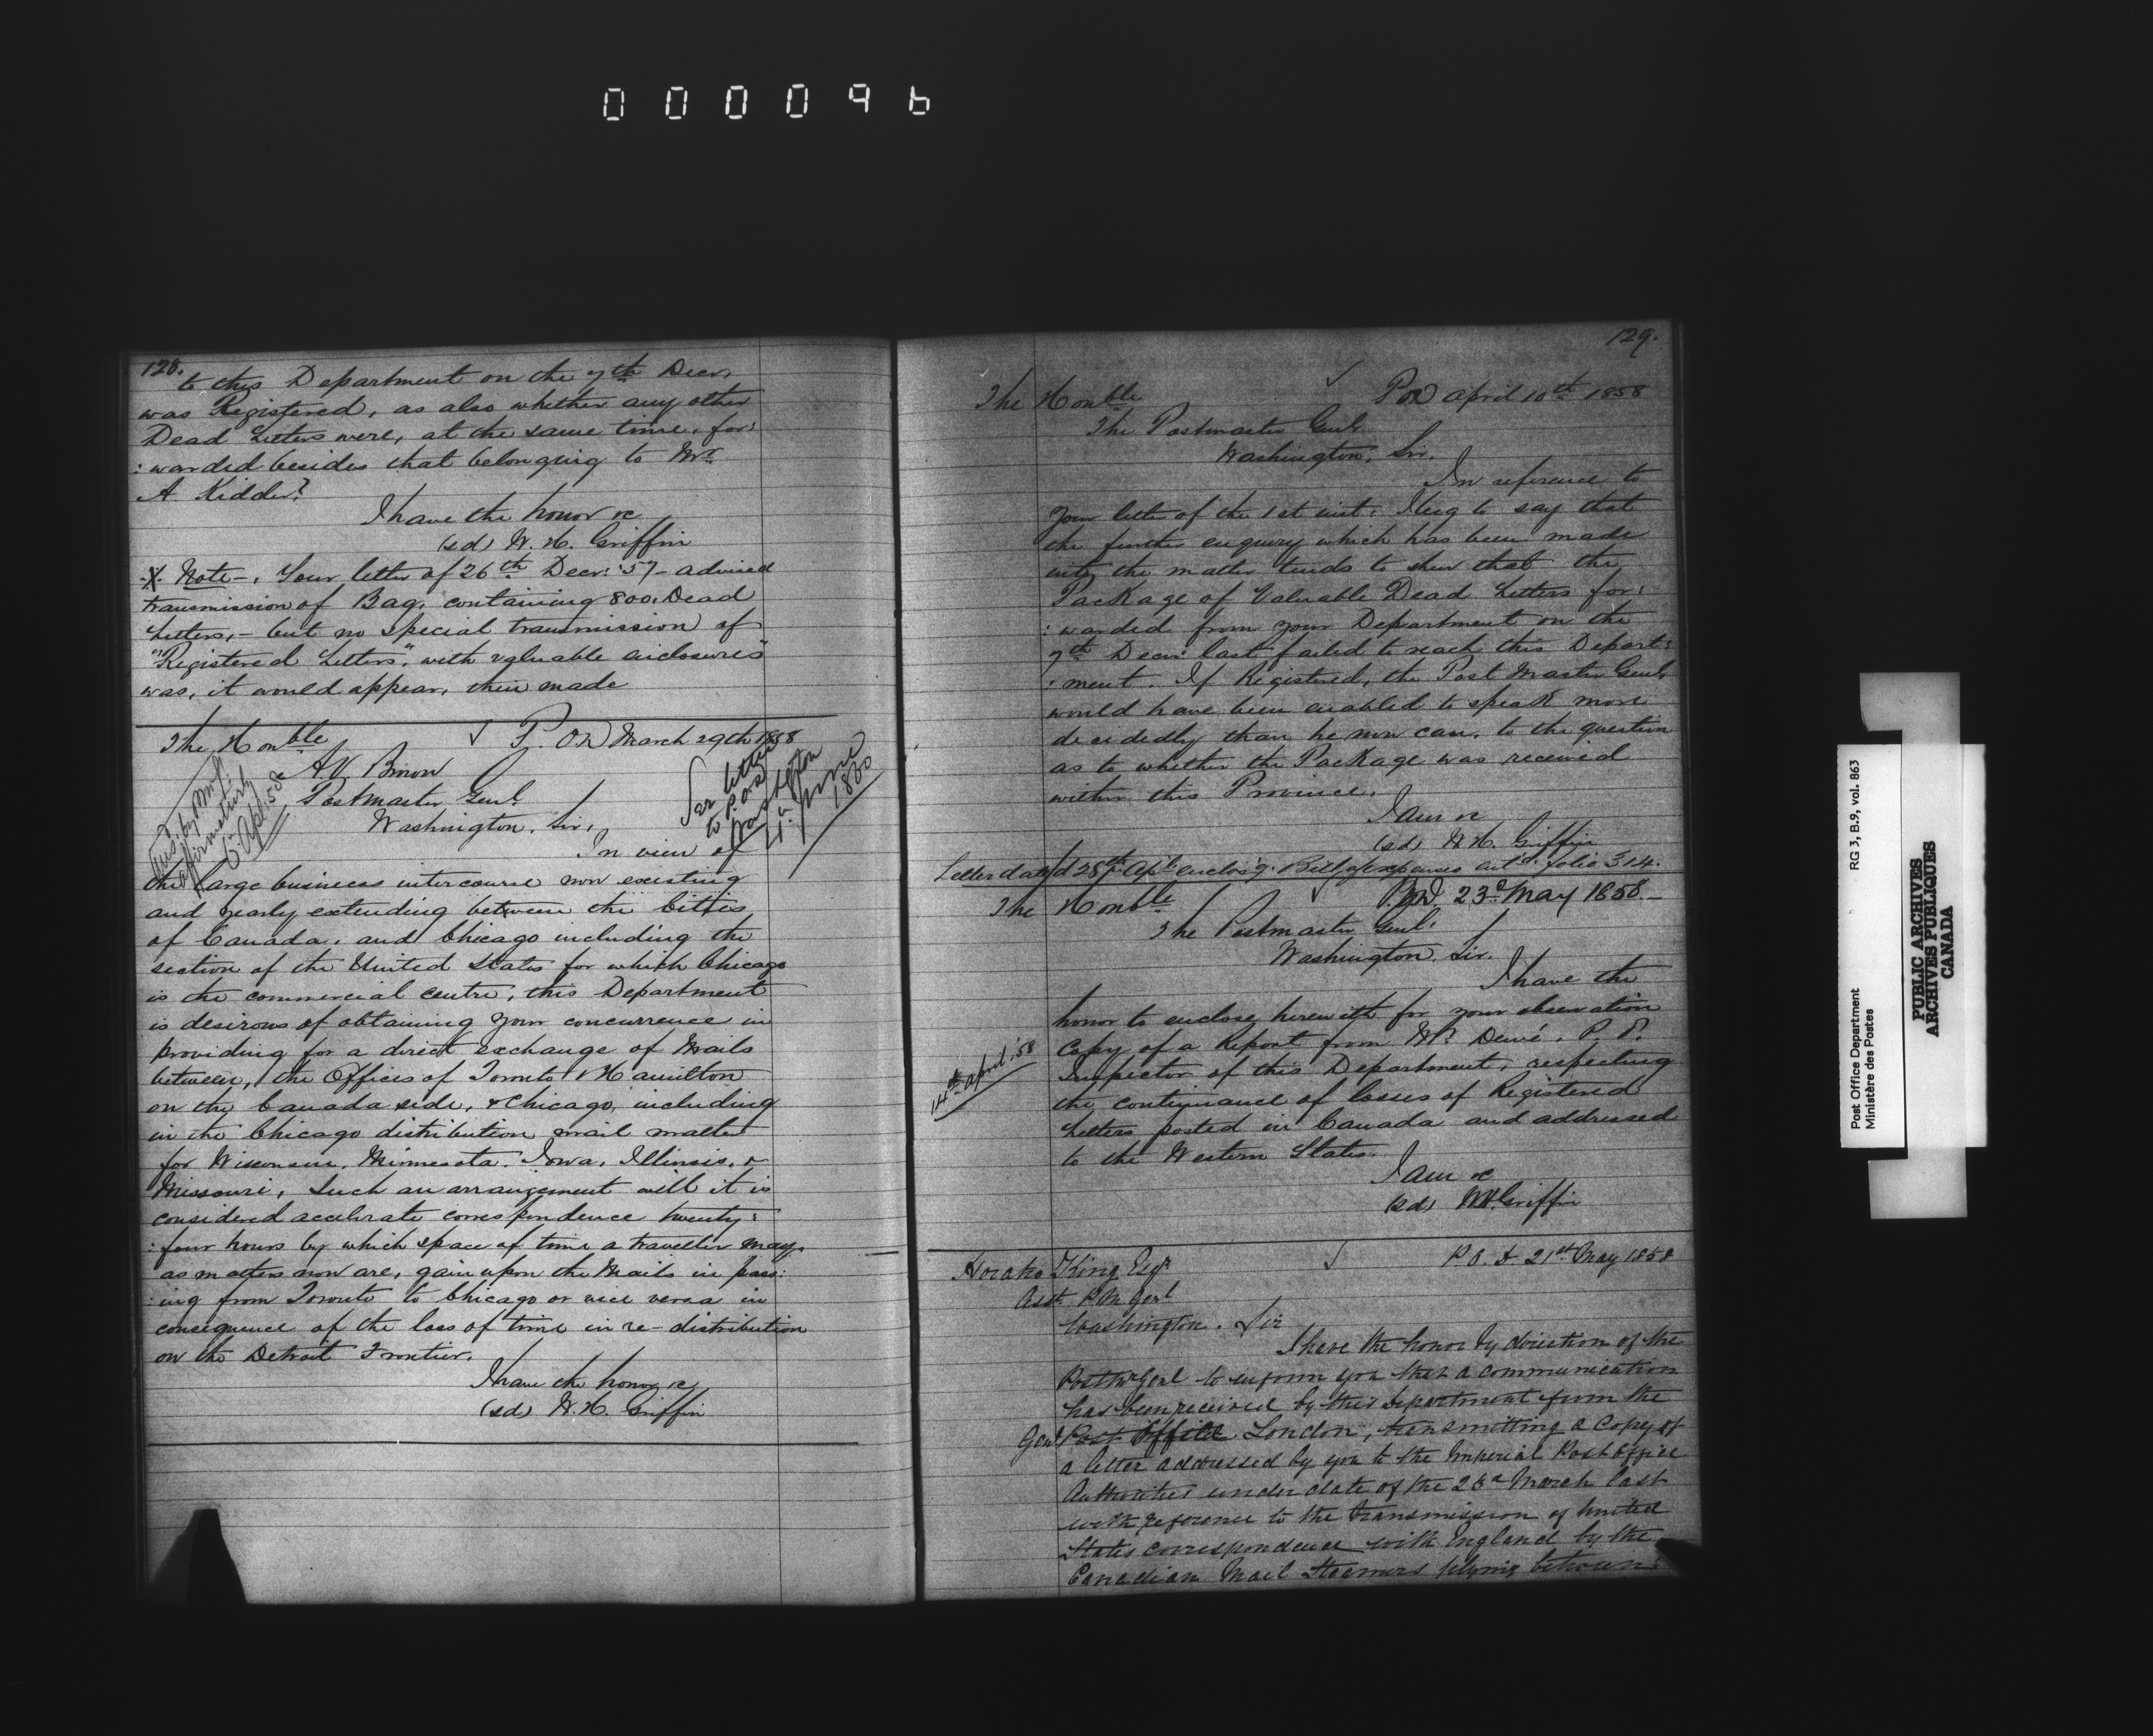 000096
128.
to this Department on the 7th Decr,
was Registered, as also whether any other
Dead Letters were, at the same time, for:
:warded besides that belonging to Mr
A Kidder?
I have the honor &c
(sd) W. H. Griffin
Note -, Your letter of 26th Decr: '57 - advised
transmission of Bag, containing 800, Dead
Letters, - but no special transmission of
"Registered Letters", with valuable enclosures"
was, it would appear, then made
The Honble
✓ P. O. D March 29th 1858
A. V. Brown
Postmaster Genl.
Washington. Sir,
Ansd. by
affirmatively
6. Apl. 58
See letter
to P.O.D
Washington
4. June
1860
In view of
the large business intercourse now existing
and yearly extending between the Citties
of Canada, and Chicago including the
section of the United States for which Chicago
is the commercial centre, this Department
is desirous of obtaining your concurrence in
providing for a direct exchange of Mails
between, the Offices of Toronto & Hamilton
on the Canada side, & Chicago, including
in the Chicago distribution mail matter
for Wisconsin, Minnesota, Iowa, Illinois, &
Missouri, Such an arrangement will it is
considered accelerate correspondence twenty:
:four hours by which space of time a traveller may,
as matters now are, gain upon the Mails in pass:
:ing from Toronto to Chicago or vice versa in
consequence of the loss of time in re-distribution
on the Detroit Frontier.
I have the honor &c
(sd) W. H. Griffin
129.
✓ POD April 10th 1858
The Honble
The Postmaster Genl.
Washington, Sir.
In reference to
your letter of the 1st inst: I beg to say that
the further enquiry which has been made
into the matter tends to shew that the
Package of Valuable Dead Letters for:
:warded from your Department on the
7th Decr: last failed to reach this Depart:
:ment. If Registered, the Post Master Genl,
would have been enabled to speak more
decidedly than he now can, to the question
as to whether the Package was received
within this Province.
I am &c
(sd) W. H. Griffin
Letter dated 28th Apl. enclos'g. Bill of expenses ent'd. folio 314.
✓ P.O.D. 23d May 1858. -
The Honble
The Postmaster Genl.
Washington. Sir.
I have the
honor to enclose herewith for your observation
14th April '58
Copy of a Report from Mr. Dewé, P. O.
Inspector of this Department, respecting
the continuance of losses of Registered
Letters posted in Canada and addressed
to the Western States.
I am &c
(sd) W H. Griffin
✓ P. O. D 21st May 1858
Horatio King Esqr
Asst. P M Genl
Washington. Sir
I have the honor by direction of the
Postmr Genl to inform you that a communication
has been received by this Department from the
Genl Post Office London, transmitting a Copy of
a letter addressed by you to the Imperial Post Office
Authorities under date of the 23d March last
with reference to the transmission of United
States correspondence with England by the
Canadian Mail Steamers plying between:
Post Office Department
Ministère des Postes
RG 3, B.9, vol. 863
PUBLIC ARCHIVES
ARCHIVES PUBLIQUES
CANADA